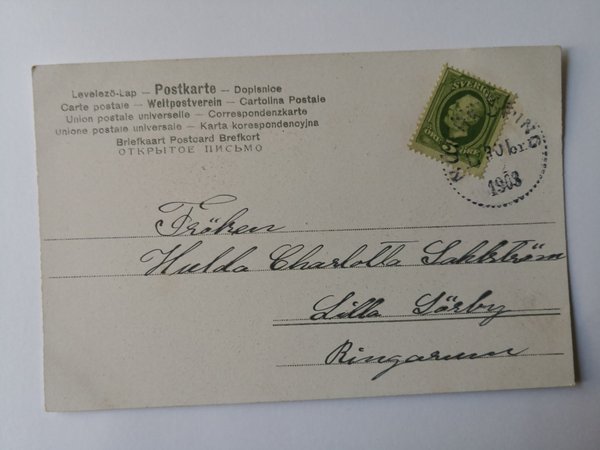 Levelező-Lap — Postkarte — Dopisnice
Carte postale — Weltpostverein — Cartolina Postale
Union postale universelle — Correspondenzkarte
Unione postale universale — Karta korespondencyjna
Briefkaart Postcard Brefkort
ОТКРЫТОЕ ПИСЬМО
SVERIGE
5
1903
Fröken
Hulda Charlotta Sahlström
Lilla Sörby
Ringarum